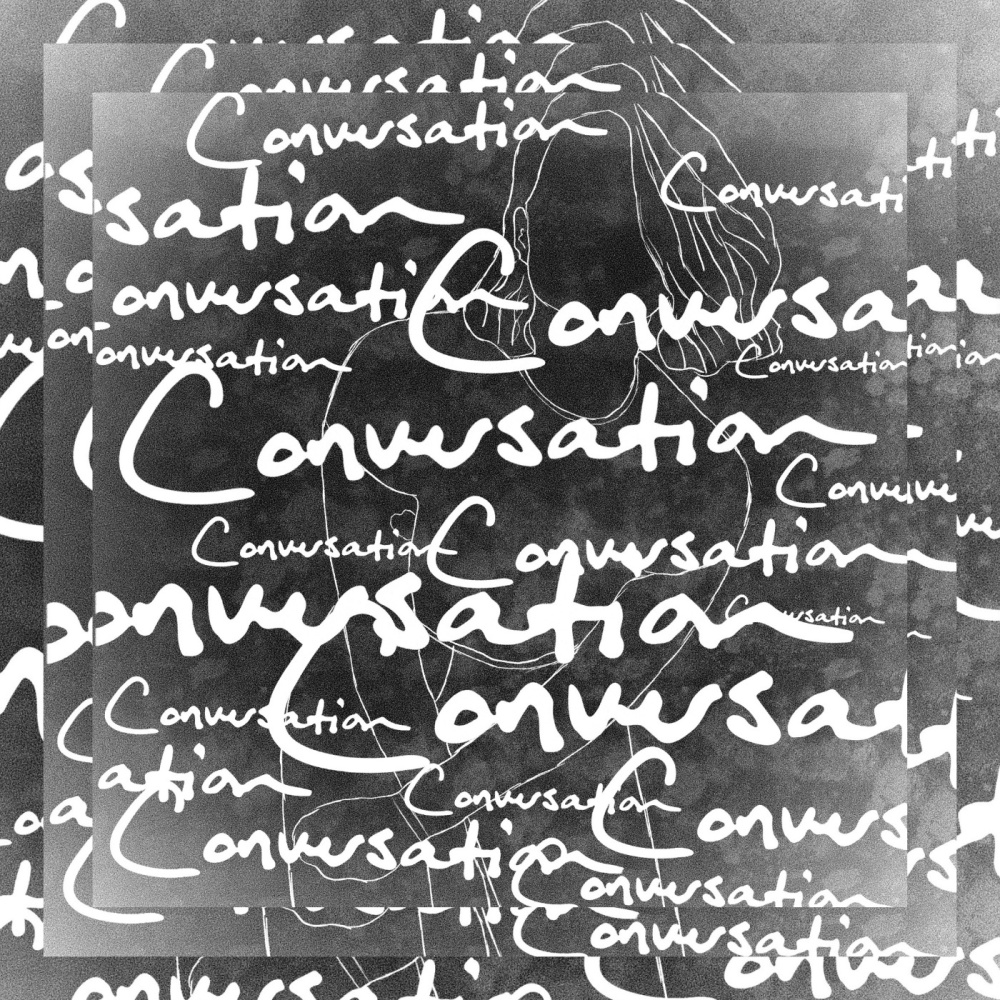 Conversation
Conversation
Conversati
sation
onversation
Conversa
onversation
Conversation
Conversation
Conve
Conversation
Conversation
onversation
Conversation
Conversa
Conversation
ation
Conversation
Convers
Conversation
Conversation
Conversation
onversation
onvers